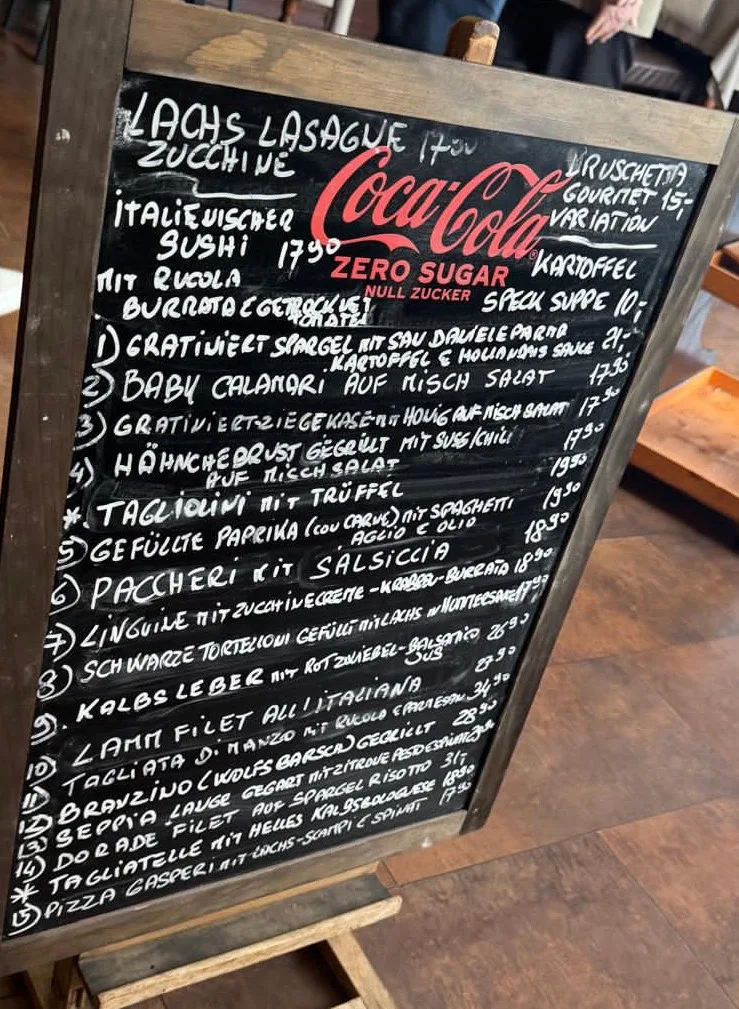 LACHS LASAGNE 17⁹⁰
ZUCCHINE
BRUSCHETTA
GOURMET 15,-
VARIATION
ITALIENISCHER
SUSHI 17⁹⁰
MIT RUCOLA
BURRATA & GETROCKNET
TOMATEN
Coca-Cola
ZERO SUGAR
NULL ZUCKER
KARTOFFEL
SPECK SUPPE 10,-
1) GRATINIERT SPARGEL MIT SAN DANIELE PARMA 21,-
KARTOFFEL & HOLLANDAIS SAUCE
2) BABY CALAMARI AUF MISCH SALAT 17⁹⁰
3) GRATINIERT ZIEGEKÄSE MIT HONIG AUF MISCH SALAT 17⁹⁰
4) HÖHNCHEBRUST GEGRILLT MIT SUSS/CHILI 17⁹⁰
AUF MISCH SALAT
*. TAGLIOLINI MIT TRÜFFEL 19⁹⁰
5) GEFÜLLTE PAPRIKA (CON CARNE) MIT SPAGHETTI 19⁹⁰
AGLIO E OLIO
6) PACCHERI MIT SALSICCIA 18⁹⁰
7) LINGUINE MIT ZUCCHINECREME-KRABBEN-BURRATA 18⁹⁰
8) SCHWARZE TORTELLONI GEFÜLLT MIT LACHS IN HUMMERSAUCE 17⁹⁰
9. KALBSLEBER MIT ROTZWIEBEL-BALSAMICO 26⁹⁰
JUS
10) LAMM FILET ALL'ITALIANA 27⁹⁰
11) TAGLIATA DI MANZO MIT RUCOLO & PARMESAN 34⁹⁰
12) BRANZINO (WOLFSBARSCH) GEGRILLT 28⁹⁰
13) SEPPIA LAUGE GEGART MIT ZITRONE PESTO & SPINAT
14) DORADE FILET AUF SPARGEL RISOTTO 31,-
* TAGLIATELLE MIT HELLES KALBSBOLOGNESE 18⁹⁰
15) PIZZA GASPERI MIT LACHS-SCAMPI & SPINAT 17⁹⁰